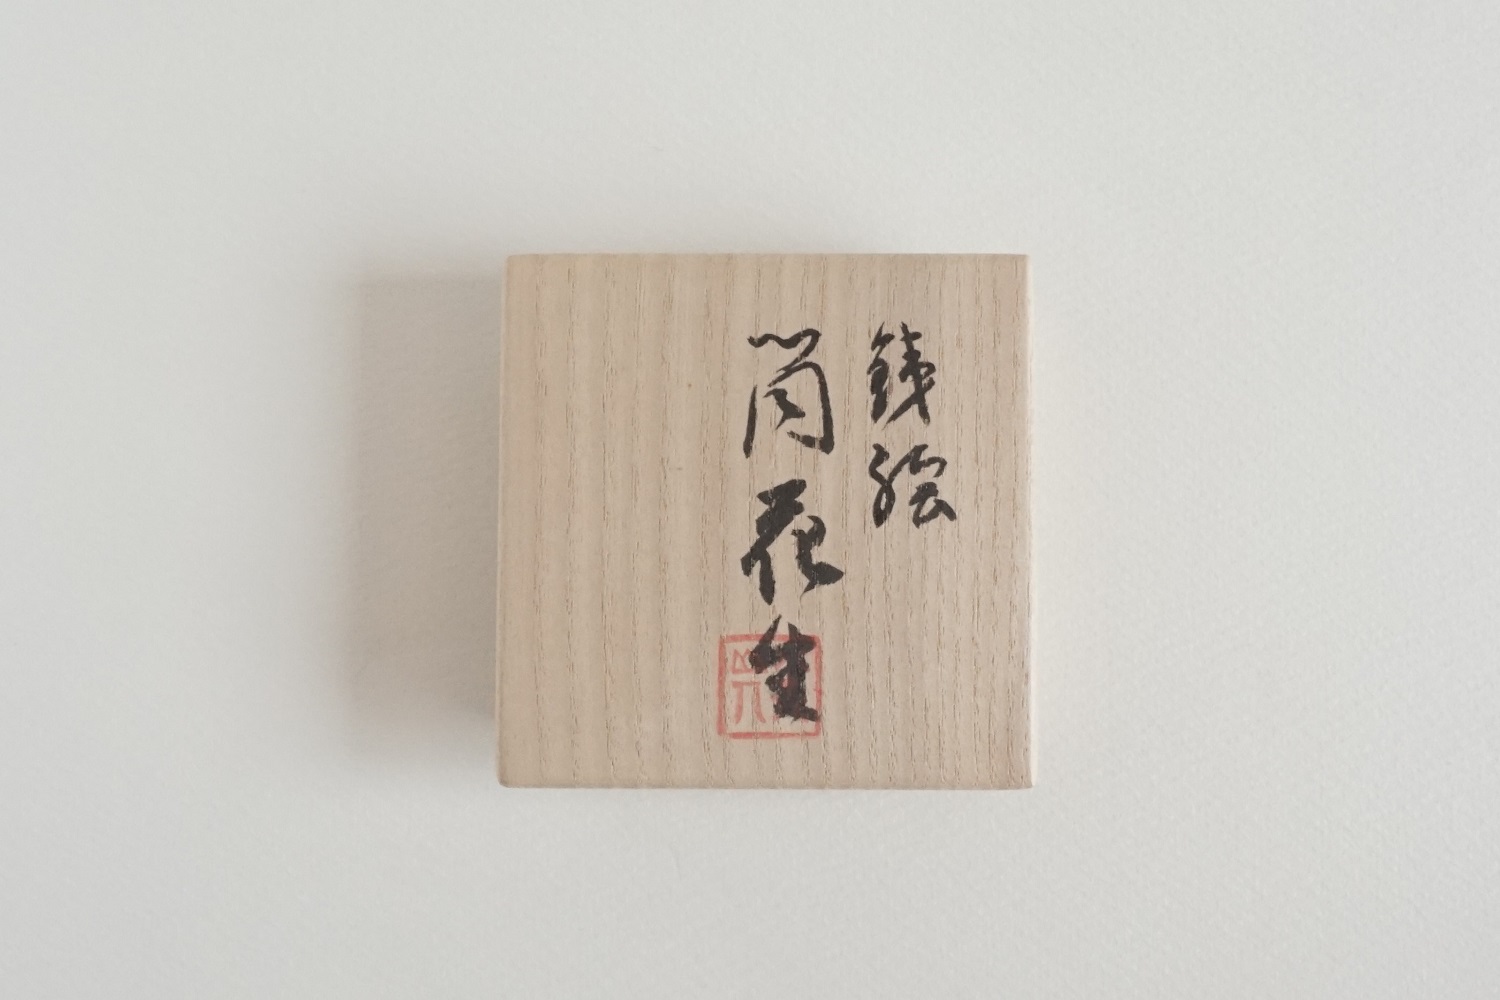 銕絵
筒花生